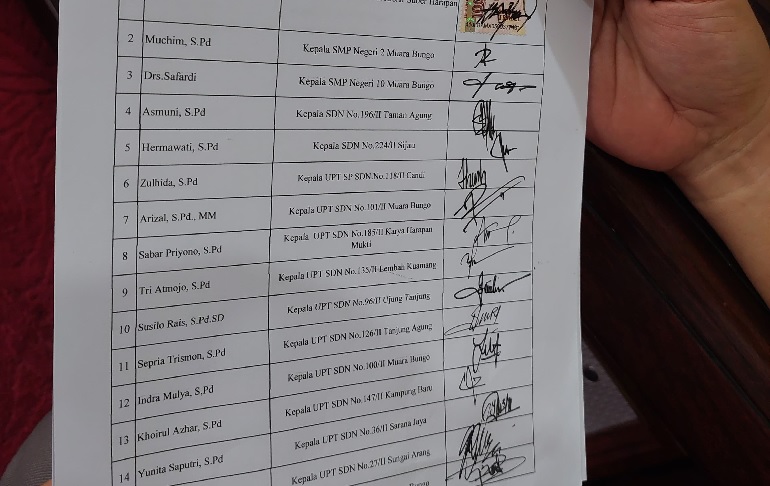 2 Muchim, S.Pd Kepala SMP Negeri 2 Muara Bungo
3 Drs.Safardi Kepala SMP Negeri 10 Muara Bungo
4 Asmuni, S.Pd Kepala SDN No.196/II Taman Agung
5 Hermawati, S.Pd Kepala SDN No.224/II Sijau
6 Zulhida, S.Pd Kepala UPT SP SDN.No.118/II Candi
7 Arizal, S.Pd., MM Kepala UPT SDN No.101/II Muara Bungo
8 Sabar Priyono, S.Pd Kepala UPT SDN No.185/II Karya Harapan
Mukti
9 Tri Atmojo, S.Pd Kepala UPT SDN No.135/II Lembah Kuamang
10 Susilo Rais, S.Pd.SD Kepala UPT SDN No.96/II Ujung Tanjung
11 Sepria Trismon, S.Pd Kepala UPT SDN No.126/II Tanjung Agung
12 Indra Mulya, S,Pd Kepala UPT SDN No.100/II Muara Bungo
13 Khoirul Azhar, S.Pd Kepala UPT SDN No.147/II Kampung Baru
14 Yunita Saputri, S.Pd Kepala UPT SDN No.36/II Sarana Jaya
Kepala UPT SDN No.27/II Sungai Arang